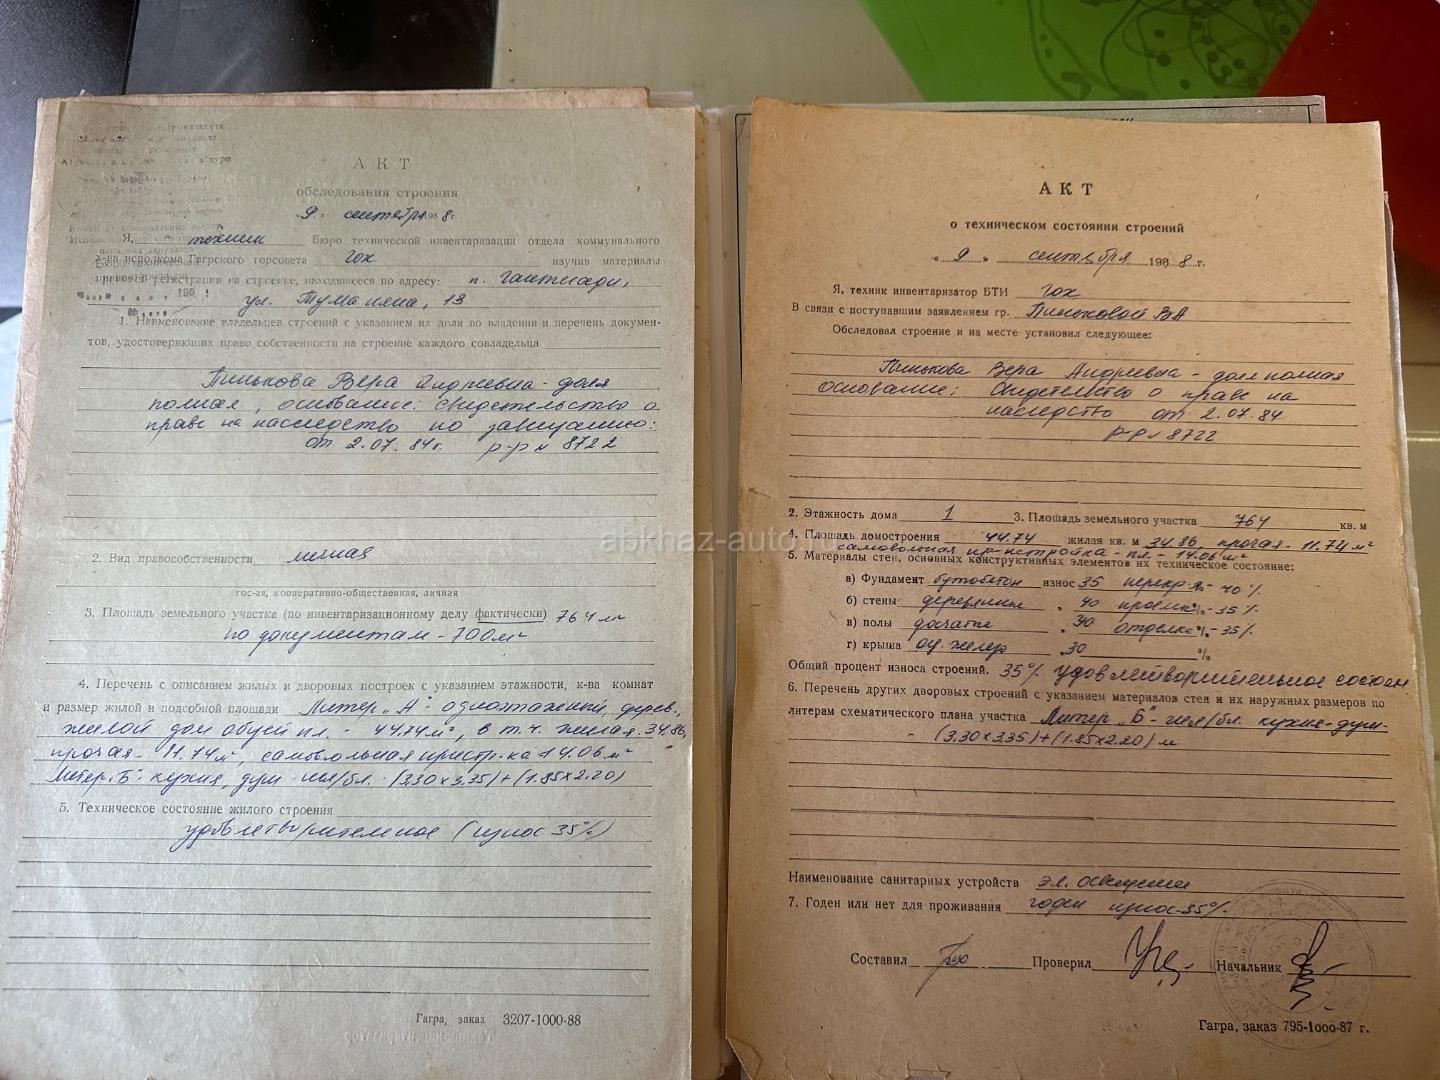 АКТ
обследования строения
„9" сентября 1988 г.
Я, техник Бюро технической инвентаризации отдела коммунального
х-ва исполкома Гагрского горсовета Гох изучив материалы
правовой регистрации на строение, находящееся по адресу: п. Гантиади,
ул. Туманяна, 13
1. Наименование владельцев строений с указанием их доли во владении и перечень докумен-
тов, удостоверяющих право собственности на строение каждого совладельца
Пинькова Вера Андреевна - доля
полная, основание: Свидетельство о
праве на наследство по завещанию:
от 2.07.84г. р-р № 8722
2. Вид правособственности личная
гос-ая, кооперативно-общественная, личная
3. Площадь земельного участка (по инвентаризационному делу фактически) 764 м²
по документам - 700 м²
4. Перечень с описанием жилых и дворовых построек с указанием этажности, к-ва комнат
и размер жилой и подсобной площади Литер „А" - одноэтажный, дерев.,
жилой дом общей пл. - 44.74 м², в т.ч. жилая - 34.86,
прочая - 11.74 м², самовольная пристр-ка 14.06 м²
Литер „Б" - кухня, душ шл/бл. - (3.30 x 3.35) + (1.85 x 2.20)
5. Техническое состояние жилого строения
удовлетворительное (износ 35%)
Гагра, заказ 3207-1000-88
АКТ
о техническом состоянии строений
„9" сентября 1988 г.
Я, техник инвентаризатор БТИ Гох
В связи с поступавшим заявлением гр. Пиньковой ВА
Обследовал строение и на месте установил следующее:
Пинькова Вера Андреевна - доля полная
основание: Свидетельство о праве на
наследство от 2.07.84
р-р № 8722
2. Этажность дома 1 3. Площадь земельного участка 764 кв. м
4. Площадь домостроения 44.74 жилая кв. м 34.86 прочая - 11.74 м²
самовольная пристройка - пл - 14.06 м²
5. Материалы стен, основных конструктивных элементов их техническое состояние:
а) Фундамент бутобетон износ 35 перекр-я - 40 %
б) стены деревянные „ 40 проемы % - 35 %
в) полы досчатые „ 30 отделка % - 35 %
г) крыша оц. железо „ 30 %
Общий процент износа строений. 35 % удовлетворительное состоян
6. Перечень других дворовых строений с указанием материалов стен и их наружных размеров по
литерам схематического плана участка Литер „Б" - шл/бл. кухня - душ -
- (3.30 x 3.35) + (1.85 x 2.20) м
Наименование санитарных устройств эл. освещение
7. Годен или нет для проживания годен износ 35%
Составил Проверил Начальник
Гагра, заказ 795-1000-87 г.
abkhaz-auto.ru